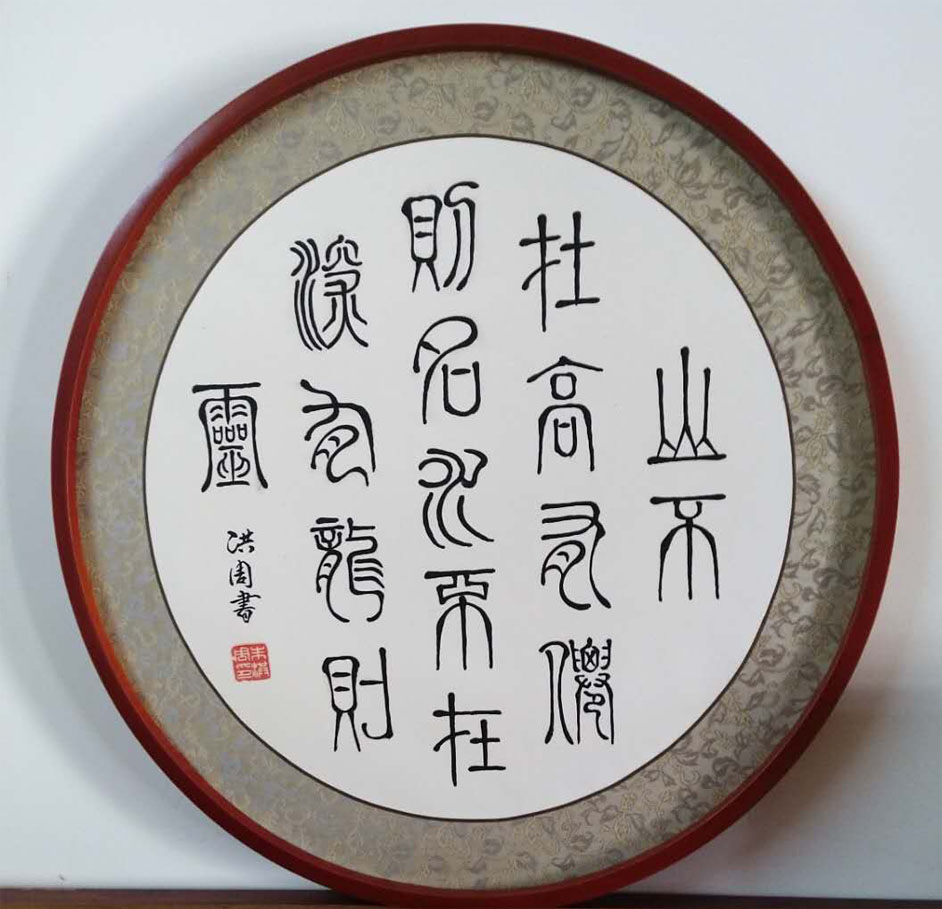 山不
在高有僊
則名水不在
深有龍則
靈
洪周書
朱洪周印